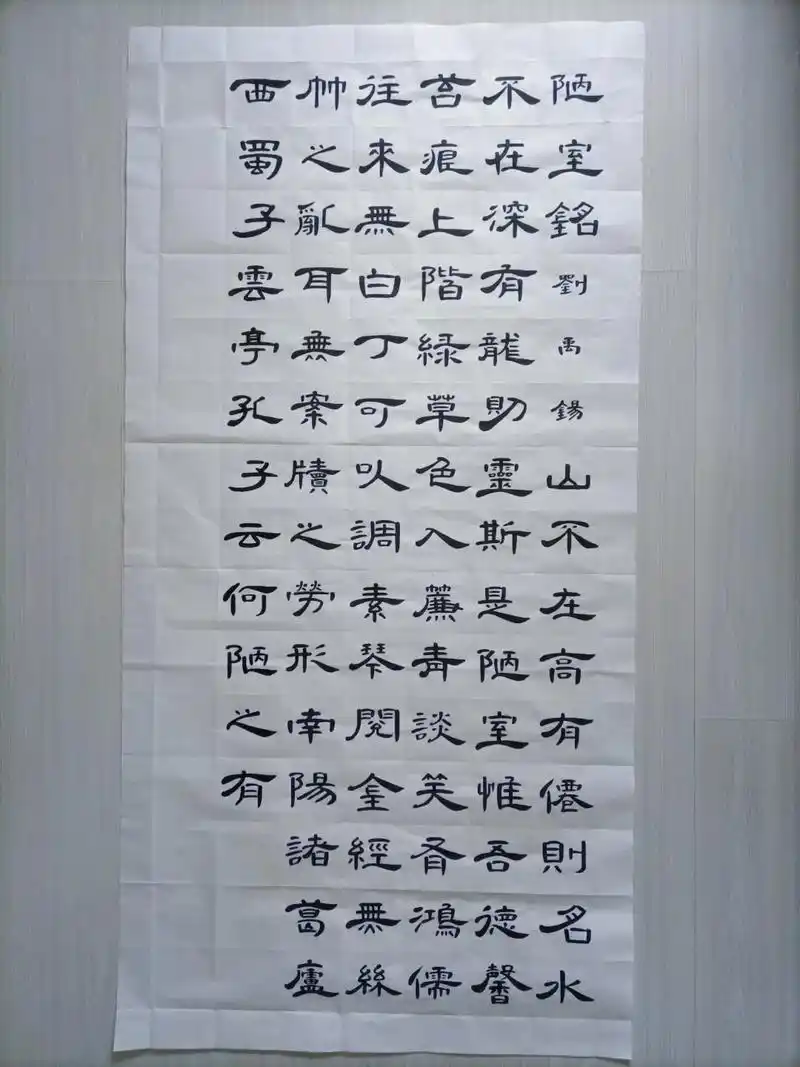 陋室銘劉禹錫山不在高有僊則名水
不在深有龍則靈斯是陋室惟吾德馨
苔痕上階緑草色入簾青談笑有鴻儒
往來無白丁可以調素琴閱金經無絲
竹之亂耳無案牘之勞形南陽諸葛廬
西蜀子雲亭孔子云何陋之有